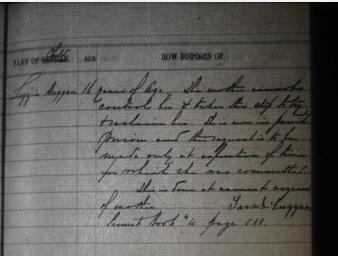 NAME OF AGE. HOW DISPOSED OF.
Lizzie Duggan 16 years of Age. The mother cannot
control her & takes this step to try
& reclaim her. She is now in
Prison and this request is to be
made only at expiration of time
for which she was committed.
This is done at earnest request
of mother Sarah Duggan
book "4 page 568.